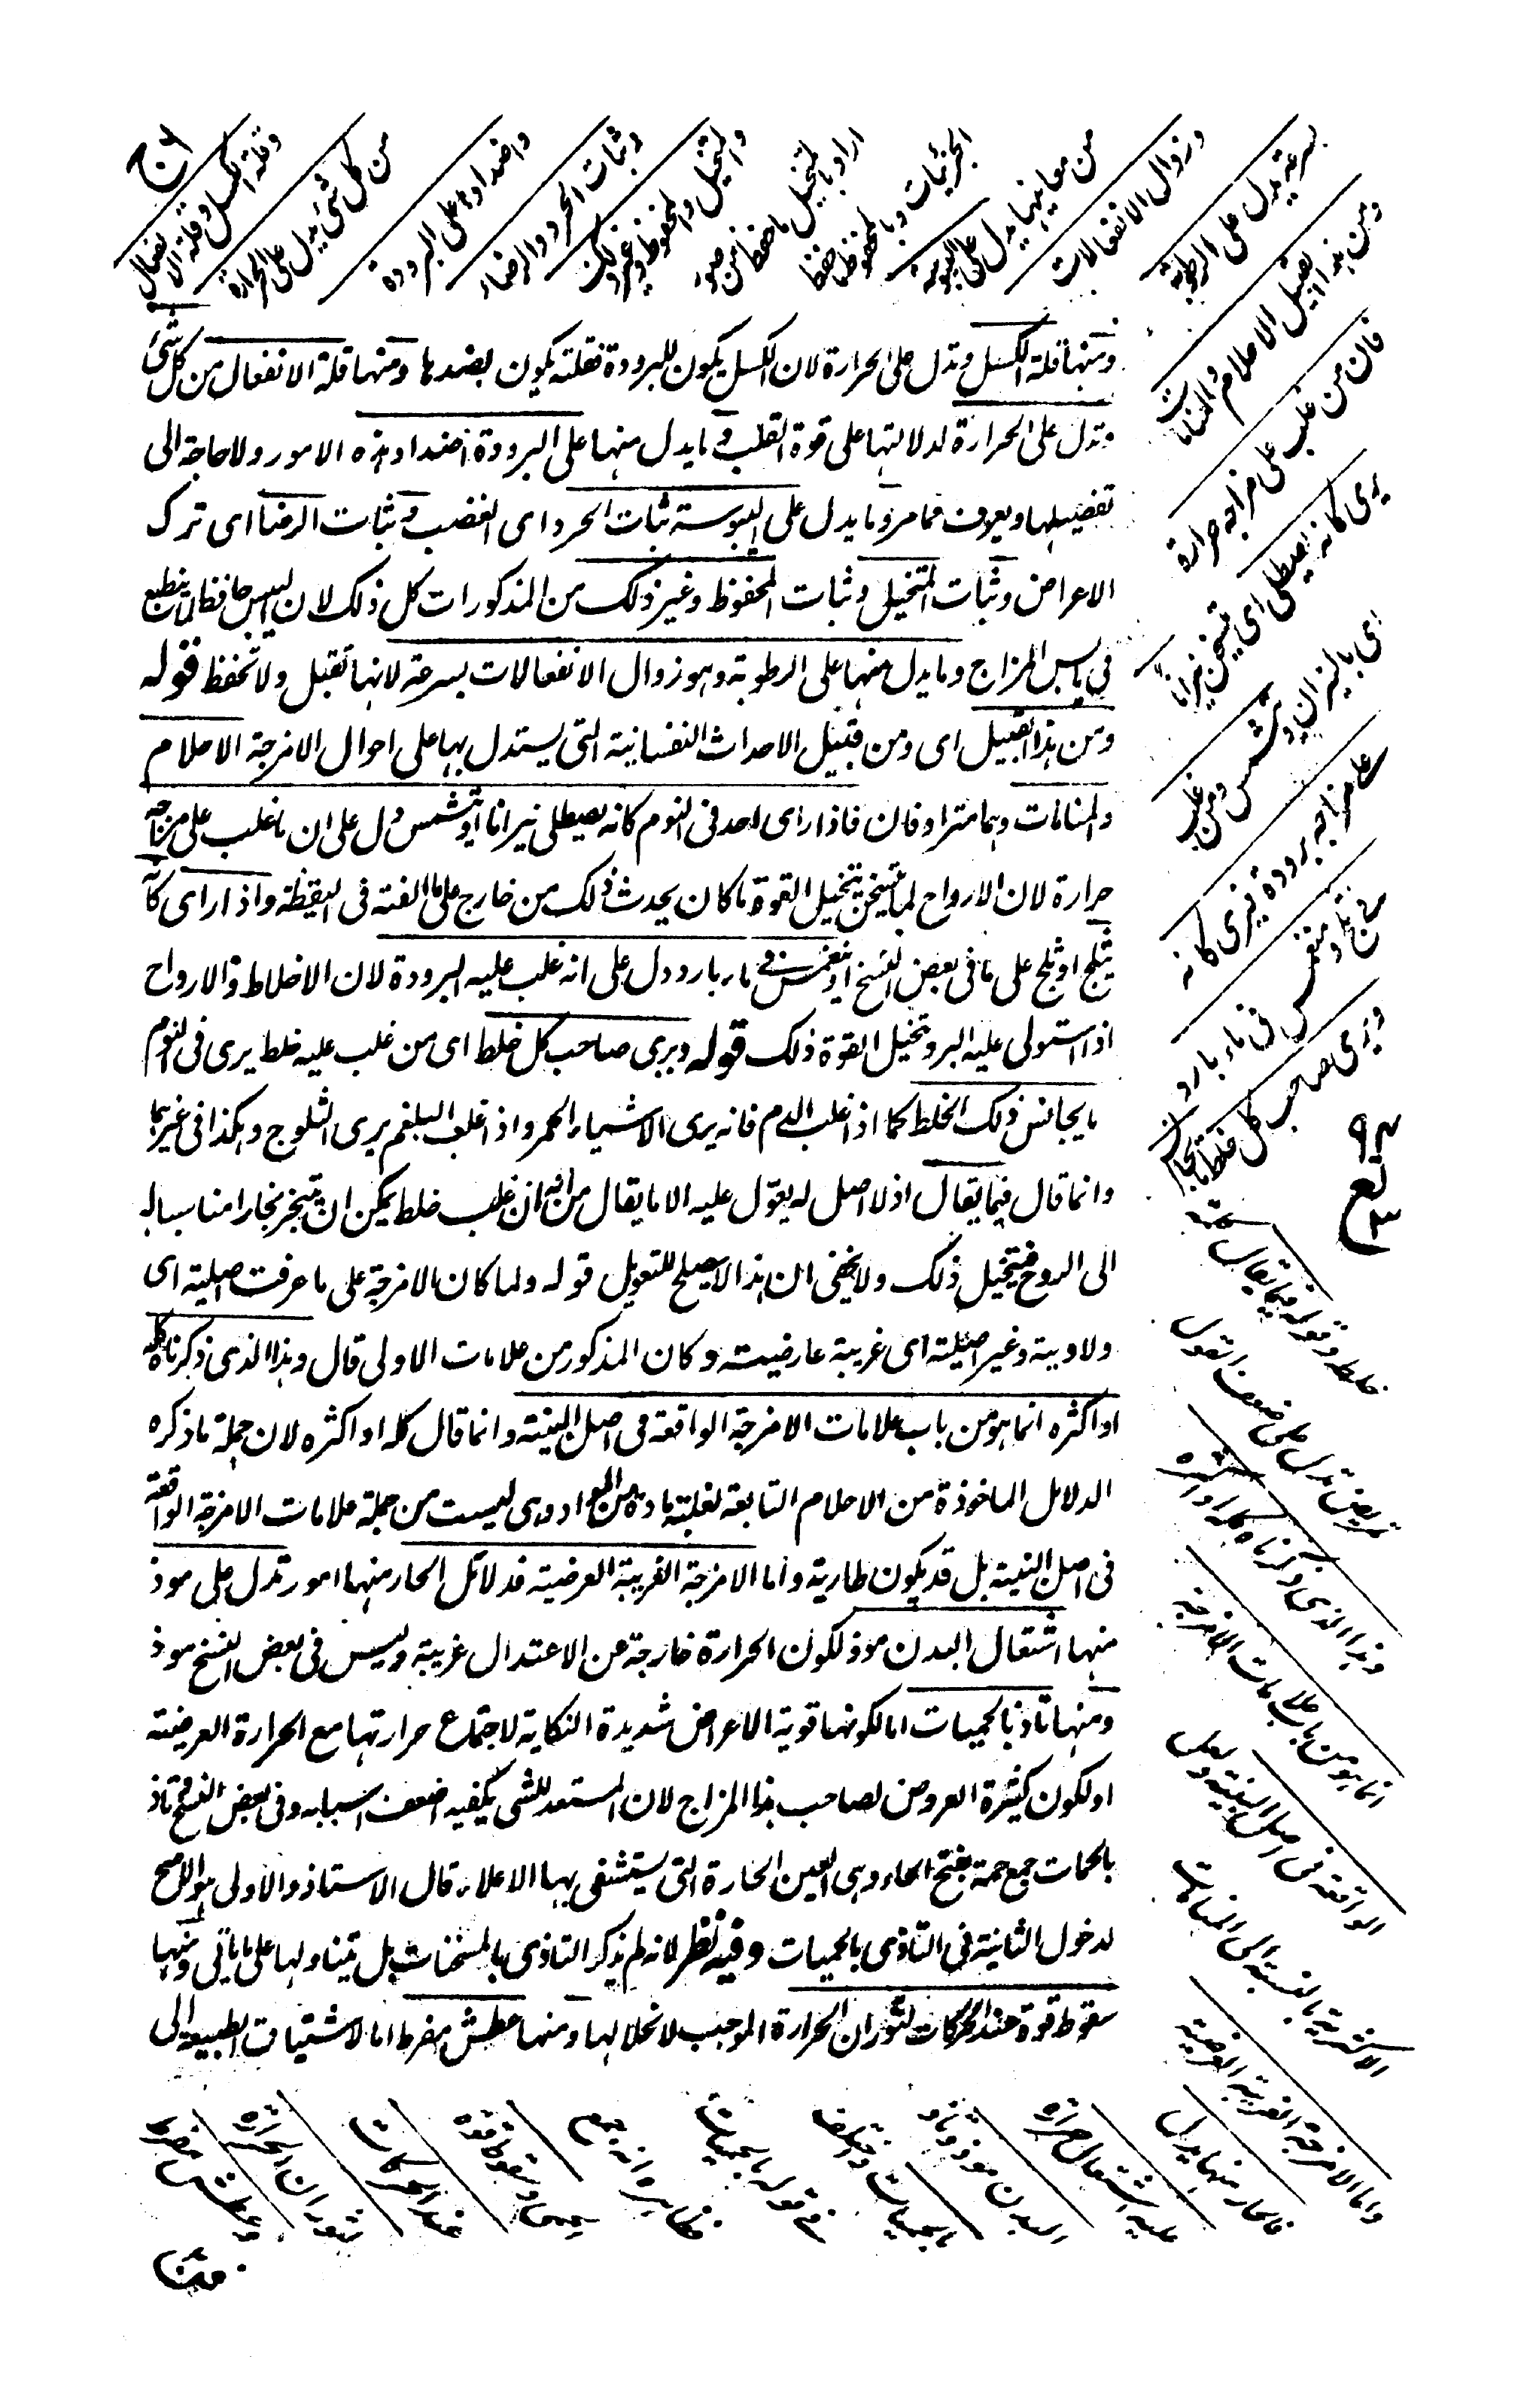 ومنها قلة الكسل وتدل على الحرارة لان الكسل يكون للبرودة فقلته يكون بضدها ومنها قلة الانفعال من كل شئ
وتدل على الحرارة لدلالتها على قوة القلب وما يدل منها على البرودة اضداد هذه الامور ولا حاجة الى
تفصيلها ويعرف مما مر وما يدل على اليبوسة ثبات الحرد اى الغضب وثبات الرضا اى ترك
الاعراض وثبات المتخيل وثبات المحفوظ وغير ذلك من المذكورات كل ذلك لان اليبس حافظ لما ينطبع
فى يابس المزاج وما يدل منها على الرطوبة وهو زوال الانفعالات بسرعة لانها تقبل ولا تحفظ قوله
ومن هذا القبيل اى ومن قبيل الاحداث النفسانية التى يستدل بها على احوال الامزجة الاحلام
والمنامات وهما مترادفان فاذا راى احد فى النوم كانه يصطلى نيرانا او يتشمس دل على ان ما غلب على مزاجه
حرارة لان الارواح لما تسخن تتخيل القوة ما كان يحدث ذلك من خارج على ما الفته فى اليقظة واذا راى كانه
يثلج او ثلج على ما فى بعض النسخ او ينغمس فى ماء بارد دل على انه غلب عليه البرودة لان الاخلاط والارواح
اذا استولى عليه البرد تخيل القوة ذلك قوله ويرى صاحب كل خلط اى من غلب عليه خلط يرى فى النوم
ما يجانس ذلك الخلط كما اذا غلب الدم فانه يرى الاشياء الحمر واذا غلب البلغم يرى الثلوج وهكذا فى غيرهما
وانما قال فيما يقال اذ لا اصل له يعول عليه الا ما يقال من انه ان غلب خلط يمكن ان يتبخر بخارا مناسبا له
الى الروح فيتخيل ذلك ولا يخفى ان هذا لا يصلح للتعويل قوله ولما كان الامزجة على ما عرفت اصلية اى
ولادية وغير اصلية اى غريبة عارضية وكان المذكور من علامات الاولى قال وهذا الذى ذكرناه كله
او اكثره انما هو من باب علامات الامزجة الواقعة فى اصل البنية وانما قال كله او اكثره لان جملة ما ذكره
الدلائل الماخوذة من الاحلام التابعة لغلبة مادة من المواد وهى ليست من جملة علامات الامزجة الواقعة
فى اصل البنية بل قد يكون طارية واما الامزجة الغريبة العرضية فدلائل الحار منها امور تدل على موذ
منها اشتعال البدن موذ لكون الحرارة خارجة عن الاعتدال غريبة وليس فى بعض النسخ موذ
ومنها تاذ بالحميات اما لكونها قوية الاعراض شديدة النكاية لاجتماع حرارتها مع الحرارة العرضية
او لكون كثيرة العروض لصاحب هذا المزاج لان المستعد للشى يكفيه اضعف اسبابه وفى بعض النسخ تاذ
بالحمات جمع حمة بفتح الحاء وهى العين الحارة التى يستشفى بها الاعلاء قال الاستاذ والاولى هو الاصح
لدخول الثانية فى التاذى بالحميات وفيه نظر لانه لم يذكر التاذى بالمسخنات بل تيناولها على ما ياتى ومنها
سقوط قوة عند الحركات لثوران الحرارة الموجب لانحلالها ومنها عطش مفرط اما لاشتياق الطبيعة الى
وقلة الكسل وقلة الانفعال
من كل شئ يدل على الحرارة
واضدادها على البرودة
وثبات الحرد والرضاء
والتخيل والمحفوظ وغير ذلك
اراد بالتخيل ما حفظ من صور
الجزئيات وبالمحفوظ ما حفظ
من معانيها يدل على اليبوسة
وزوال الانفعالات
بسرعة يدل على الرطوبة
ومن هذا القبيل الاحلام والمنامات
فان من غلب على مزاجه حرارة
يرى كانه يصطلى اى يتسخن نيرانا
اى بالنيران او يتشمس ومن غلب
على مزاجه برودة فيرى كانه
يثلج او منغمس فى ماء بارد
ويرى صاحب كل خلط ما يجانس
خلطه وقوله فيما يقال
تمريض يدل على ضعف القول
وهذا الذى ذكرناه كله او اكثره
انما هو من باب علامات الامزجة
الواقعة فى اصل البنية
الاكثرية بالنسبة الى المنامات
واما الامزجة الغريبة العرضية
فالحار منها يدل
عليه اشتعال حرارة
البدن موذ وتاذ
بالحميات
سقوط قوة
عند الحركات
لثوران الحرارة
وعطش مفرط